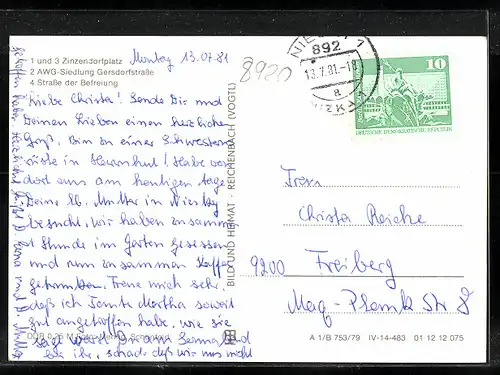 1 und 3 Zinzendorfplatz
2 AWG-Siedlung Gersdorfstraße
4 Straße der Befreiung
Montag 13.07.81
Liebe Christa! Sende Dir und
Deinen Lieben einen herzlichen
Gruß. Bin zu einer Schwestern
rüste in Herrnhut! Habe von
dort aus am heutigen Tage
Deine lb. Mutter in Niesky
besucht, wir haben zusammen
1 Stunde im Garten gesessen
und nun zusammen Kaffee
getrunken. Freue mich sehr,
daß ich Tante Martha soweit
gut angetroffen habe, wie sie
sagt
schade, daß wir uns nicht
getroffen haben. Herzliche Grüße
BILD UND HEIMAT · REICHENBACH (VOGTL)
8920
892
13.7.81.-18
a
10
DEUTSCHE DEMOKRATISCHE REPUBLIK
Christa Reiche
9200 Freiberg
Max-Planck Str 8
A 1/B 753/79 IV-14-483 01 12 12 075